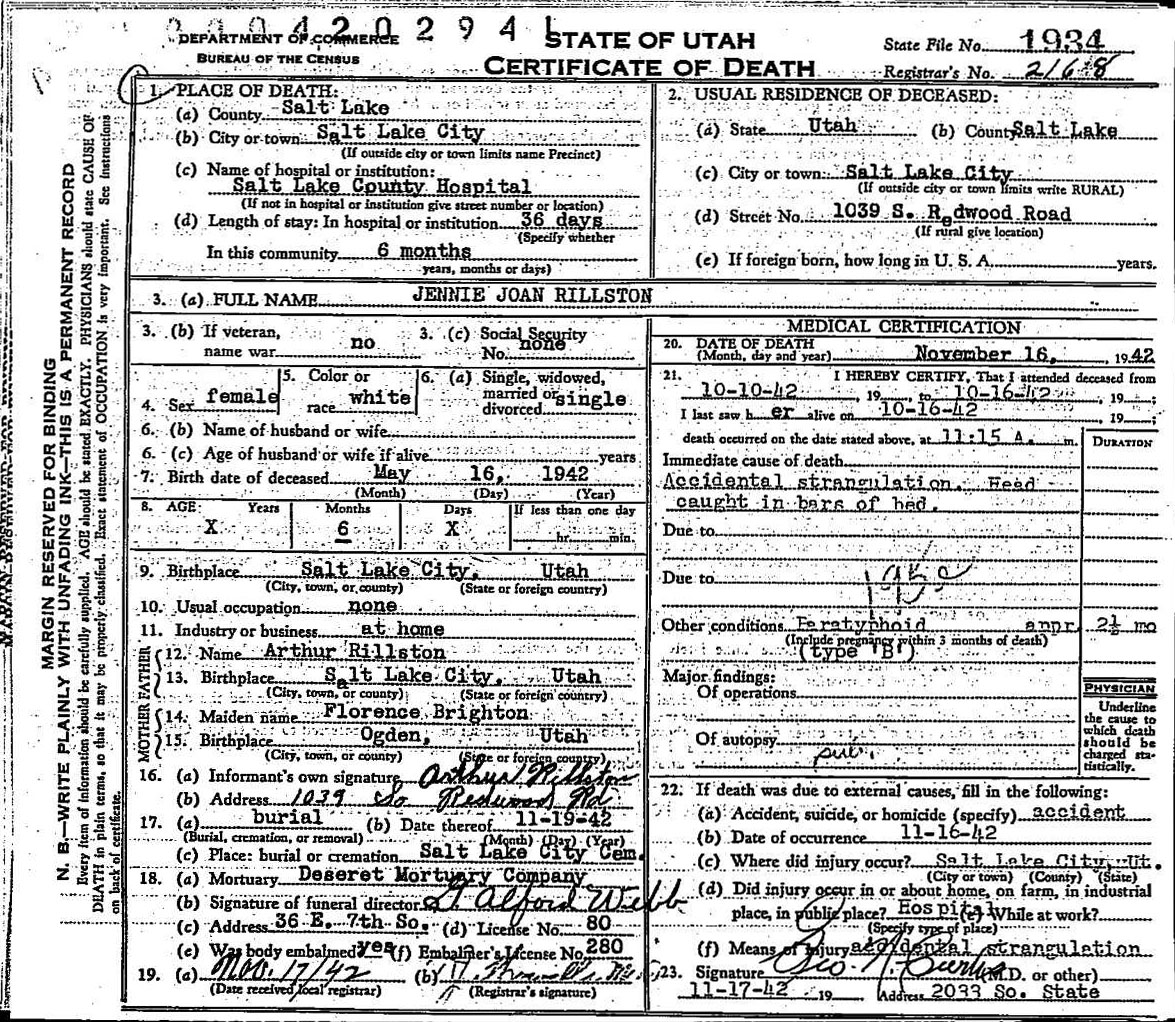 0 0 4 2 0 2 9 4 1
DEPARTMENT OF COMMERCE
BUREAU OF THE CENSUS
STATE OF UTAH
CERTIFICATE OF DEATH
State File No. 1934
Registrar's No. 2168
MARGIN RESERVED FOR BINDING
N. B.—WRITE PLAINLY WITH UNFADING INK—THIS IS A PERMANENT RECORD
Every item of information should be carefully supplied. AGE should be stated EXACTLY. PHYSICIANS should state CAUSE OF
DEATH in plain terms, so that it may be properly classified. Exact statement of OCCUPATION is very important. See instructions
on back of certificate.
1. PLACE OF DEATH:
(a) County Salt Lake
(b) City or town Salt Lake City
(If outside city or town limits name Precinct)
(c) Name of hospital or institution:
Salt Lake County Hospital
(If not in hospital or institution give street number or location)
(d) Length of stay: In hospital or institution 36 days
(Specify whether
In this community 6 months
years, months or days)
2. USUAL RESIDENCE OF DECEASED:
(a) State Utah (b) County Salt Lake
(c) City or town: Salt Lake City
(If outside city or town limits write RURAL)
(d) Street No. 1039 S. Redwood Road
(If rural give location)
(e) If foreign born, how long in U. S. A. years.
3. (a) FULL NAME JENNIE JOAN RILLSTON
3. (b) If veteran, name war no
3. (c) Social Security No. none
4. Sex female
5. Color or race white
6. (a) Single, widowed, married or divorced single
6. (b) Name of husband or wife
6. (c) Age of husband or wife if alive years
7. Birth date of deceased May 16, 1942
(Month) (Day) (Year)
8. AGE: Years Months Days If less than one day
X 6 X hr. min.
9. Birthplace Salt Lake City, Utah
(City, town, or county) (State or foreign country)
10. Usual occupation none
11. Industry or business at home
FATHER
12. Name Arthur Rillston
13. Birthplace Salt Lake City, Utah
(City, town, or county) (State or foreign country)
MOTHER
14. Maiden name Florence Brighton
15. Birthplace Ogden, Utah
(City, town, or county) (State or foreign country)
16. (a) Informant's own signature Arthur Rillston
(b) Address 1039 So Redwood Rd
17. (a) burial (b) Date thereof 11-19-42
(Burial, cremation, or removal) (Month) (Day) (Year)
(c) Place: burial or cremation Salt Lake City Cem.
18. (a) Mortuary Deseret Mortuary Company
(b) Signature of funeral director Alford Webb
(c) Address 36 E. 7th So. (d) License No. 80
(e) Was body embalmed yes (f) Embalmer's License No. 280
19. (a) Nov. 17/42 (b)
(Date received local registrar) (Registrar's signature)
MEDICAL CERTIFICATION
20. DATE OF DEATH
(Month, day and year) November 16, 1942
21. I HEREBY CERTIFY, That I attended deceased from
10-10-42, 19 to 10-16-42, 19 ;
I last saw h er alive on 10-16-42 19 ;
death occurred on the date stated above, at 11:15 A. m.
DURATION
Immediate cause of death
Accidental strangulation. Head
caught in bars of bed.
Due to
Due to
Other conditions Paratyphoid appr. 2½ mo
(Include pregnancy within 3 months of death)
(type 'B')
Major findings:
Of operations
Of autopsy
PHYSICIAN
Underline
the cause to
which death
should be
charged sta-
tistically.
22. If death was due to external causes, fill in the following:
(a) Accident, suicide, or homicide (specify) accident
(b) Date of occurrence 11-16-42
(c) Where did injury occur? Salt Lake City, Ut.
(City or town) (County) (State)
(d) Did injury occur in or about home, on farm, in industrial
place, in public place? Hospital (e) While at work?
(Specify type of place)
(f) Means of injury accidental strangulation
23. Signature Geo. N. Curtis (M.D. or other)
11-17-42 19 Address 2033 So. State